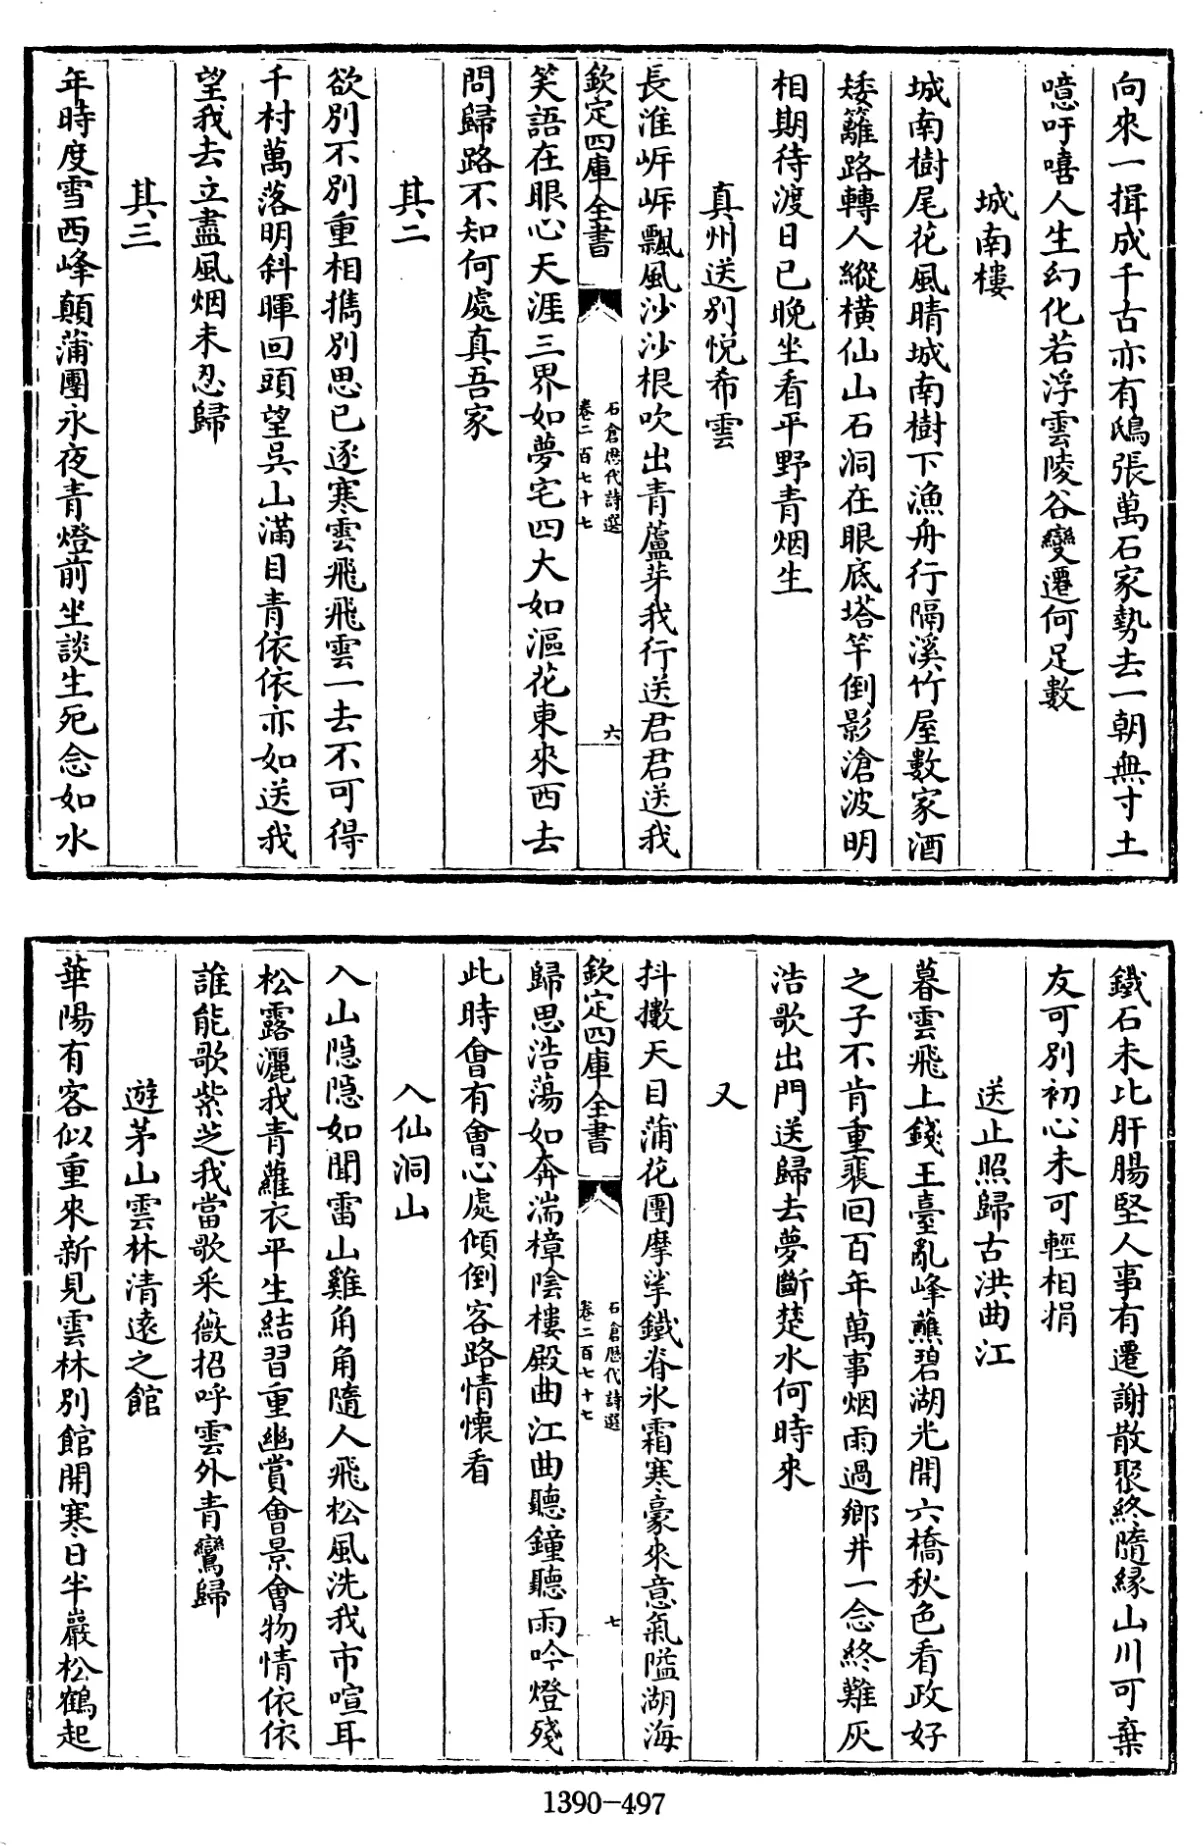 向來一揖成千古亦有鴟張萬石家勢去一朝無寸土
噫吁嘻人生幻化若浮雲陵谷變遷何足數
城南樓
城南樹尾花風晴城南樹下漁舟行隔溪竹屋數家酒
矮籬路轉人縱橫仙山石洞在眼底塔竿倒影滄波明
相期待渡日已晚坐看平野青烟生
真州送別悅希雲
長淮㟁㟁飄風沙沙根吹出青蘆芽我行送君君送我
欽定四庫全書
石倉歷代詩選
卷二百七十七
六
笑語在眼心天涯三界如夢宅四大如漚花東來西去
問歸路不知何處真吾家
其二
欲別不別重相擕別思已逐寒雲飛飛雲一去不可得
千村萬落明斜暉回頭望吳山滿目青依依亦如送我
望我去立盡風烟未忍歸
其三
年時度雪西峰顛蒲團永夜青燈前坐談生死念如水
鐵石未比肝腸堅人事有遷謝散聚終隨緣山川可棄
友可別初心未可輕相捐
送止照歸古洪曲江
暮雲飛上錢王臺亂峰蘸碧湖光開六橋秋色看政好
之子不肯重裴回百年萬事烟雨過鄉井一念終難灰
浩歌出門送歸去夢斷楚水何時來
又
抖擻天目蒲花團摩挲鐵脊氷霜寒豪來意氣隘湖海
欽定四庫全書
石倉歷代詩選
卷二百七十七
七
歸思浩蕩如奔湍樟陰樓殿曲江曲聽鐘聽雨吟燈殘
此時會有會心處傾倒客路情懷看
入仙洞山
入山隠隠如聞雷山雞角角隨人飛松風洗我市喧耳
松露灑我青蘿衣平生結習重幽賞會景會物情依依
誰能歌紫芝我當歌采薇招呼雲外青鸞歸
遊茅山雲林清遠之館
華陽有客似重來新見雲林別館開寒日半巖松鶴起
1390-497